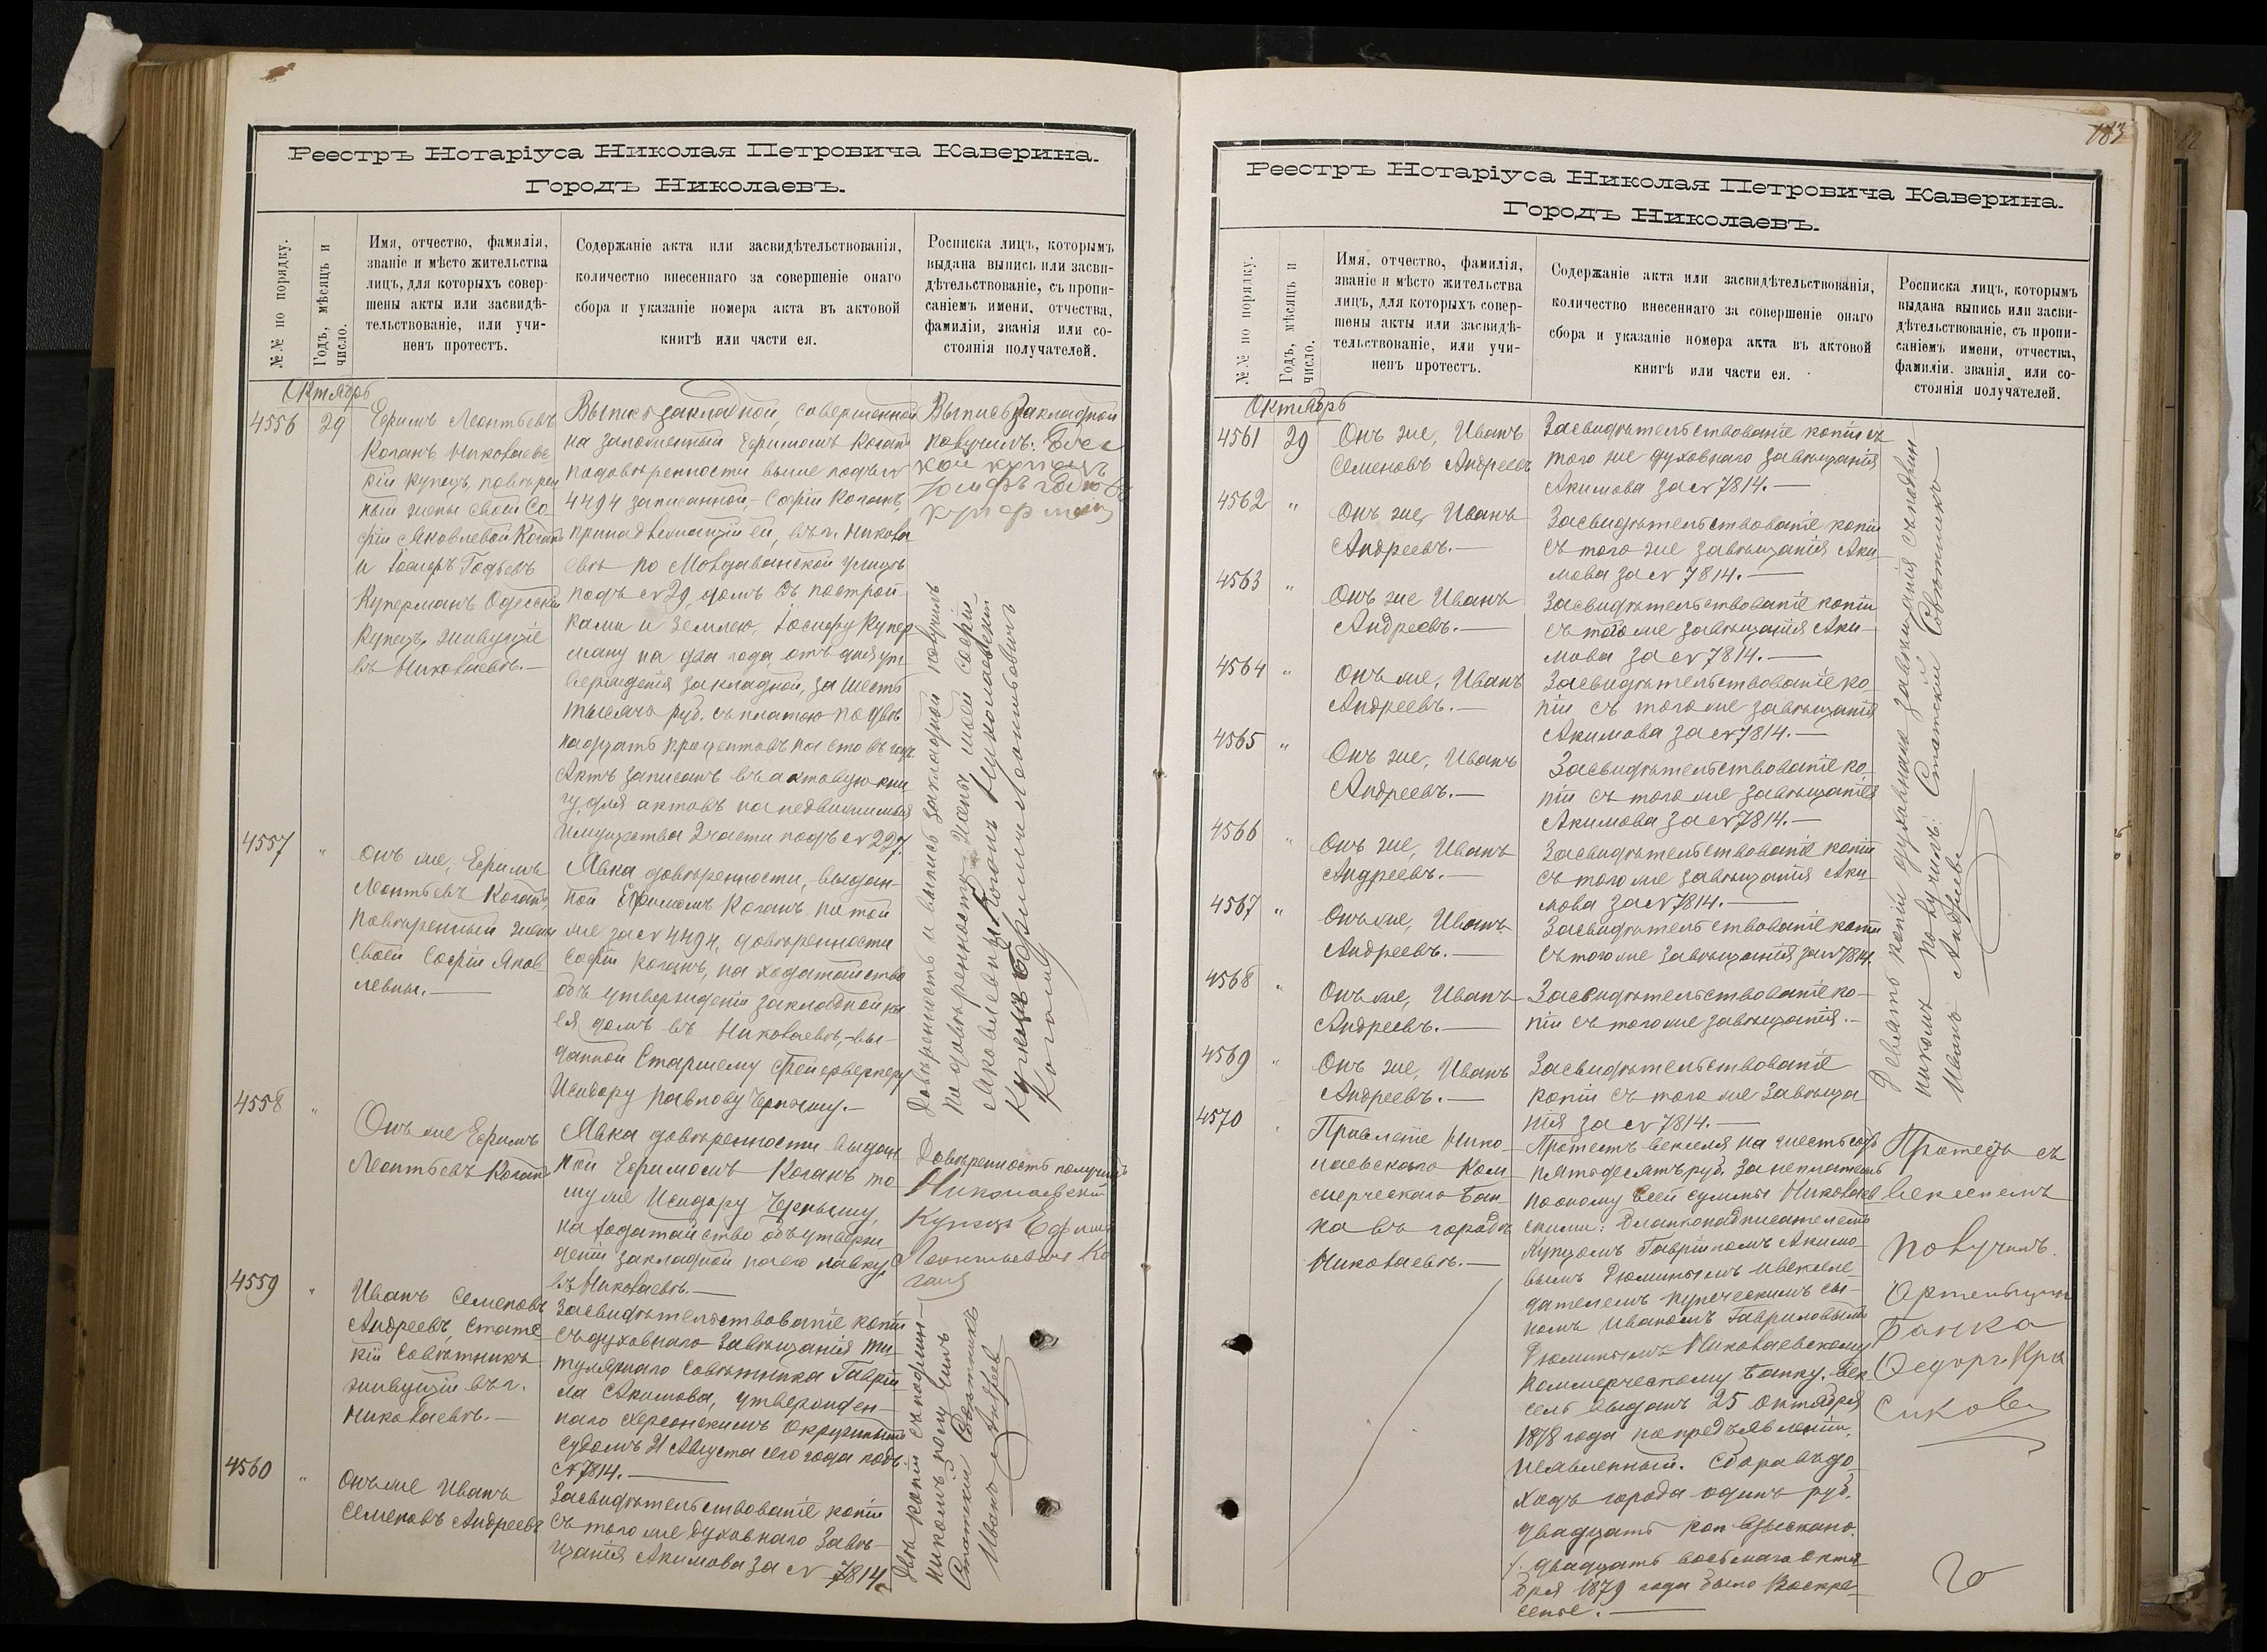 Реестръ Нотаріуса Николая Петровича Каверина.
Городъ Николаевъ.
№№ по порядку.
Годъ, мѣсяцъ и
число.
Имя, отчество, фамилія,
званіе и мѣсто жительства
лицъ, для которыхъ совер-
шены акты или засвидѣ-
тельствованіе, или учи-
ненъ протестъ.
Содержаніе акта или засвидѣтельствованія,
количество внесеннаго за совершеніе онаго
сбора и указаніе номера акта въ актовой
книгѣ или части ея.
Росписка лицъ, которымъ
выдана выпись или засви-
дѣтельствованіе, съ пропи-
саніемъ имени, отчества,
фамиліи, званія или со-
стоянія получателей.
Октябрь
4556
29
Ефимъ Леонтьевъ
Коганъ Николаевс
кій купецъ, повѣрен
ный жены своей Со
фіи Яковлевой Коганъ
и Іосифъ Годьевъ
Куперманъ Одесскій
купецъ, живущіе
въ Николаевѣ.—
Выпись закладной, совершенной
на заложенный Ефимомъ Коганъ
по довѣренности выше подъ №
4494 записанной, Софіи Коганъ,
принадлежащій ей, въ г. Никола
евѣ по Молдаванской улицѣ
подъ № 29 домъ съ построй-
ками и землею, Іосифу Купер
ману на два года отъ дня ут-
вержденія закладной, за шесть
тысячъ руб. съ платою по двѣ
надцать процентовъ на сто въ годъ.
Актъ записанъ въ актовую кни
гу для актовъ на недвижимыя
имущества 2 части подъ № 227.
Выпись закладной
получилъ: Одес
кой купецъ
Юсифъ
Куперманъ
4557
"
Онъ же, Ефимъ
Леонтьевъ Коганъ,
повѣренный жены
своей Софіи Яков
левны.—
Явка довѣренности, выдан-
ной Ефимомъ Коганъ по той
же за № 4494, довѣренности
Софіи Коганъ, на ходатайство
объ утвержденіи закладной на
ея домъ въ Николаевѣ,- вы-
данной Старшему Фейерверкеру
Исидору Павлову Черныму.—
Довѣренность и выпись закладной получилъ
по довѣренности жены моей Софіи
Яковлевны Коганъ Николаевский
Купецъ Ефимъ Леонтьевичъ
Коганъ
4558
"
Онъ же Ефимъ
Леонтьевъ Коганъ
Явка довѣренности выдан
ной Ефимомъ Коганъ то
му же Исидору Черныму,
на ходатайство объ утверж
деніи закладной на его лавку
въ Николаевѣ.—
Довѣренность получилъ
Николаевский
Купецъ Ефимъ
Леонтьевичъ Ко
ганъ
4559
"
Иванъ Семеновъ
Андреевъ, Статс
кій Совѣтникъ
живущій въ г.
Николаевѣ.—
Засвидѣтельствованіе копіи
съ духовнаго завѣщанія ти-
тулярнаго совѣтника Гаврі-
ла Акимова, утвержден-
наго Херсонскимъ Окружнымъ
Судомъ 21 Августа сего года подъ
№ 7814.—
4560
"
Онъ же Иванъ
Семеновъ Андреевъ
Засвидѣтельствованіе копіи
съ того же духовнаго завѣ-
щанія Акимова за № 7814.
Двѣ копіи съ подлин-
никомъ получилъ
Статскій Совѣтникъ
Иванъ Андреев
183
Реестръ Нотаріуса Николая Петровича Каверина.
Городъ Николаевъ.
№№ по порядку.
Годъ, мѣсяцъ и
число.
Имя, отчество, фамилія,
званіе и мѣсто жительства
лицъ, для которыхъ совер-
шены акты или засвидѣ-
тельствованіе, или учи-
ненъ протестъ.
Содержаніе акта или засвидѣтельствованія,
количество внесеннаго за совершеніе онаго
сбора и указаніе номера акта въ актовой
книгѣ или части ея.
Росписка лицъ, которымъ
выдана выпись или засви-
дѣтельствованіе, съ пропи-
саніемъ имени, отчества,
фамиліи. званія или со-
стоянія получателей.
Октябрь
4561
29
Онъ же, Иванъ
Семеновъ Андреевъ
Засвидѣтельствованіе копіи съ
того же духовнаго завѣщанія
Акимова за № 7814.—
4562
"
Онъ же, Иванъ
Андреевъ.—
Засвидѣтельствованіе копіи
съ того же завѣщанія Аки-
мова за № 7814.—
4563
"
Онъ же Иванъ
Андреевъ.—
Засвидѣтельствованіе копіи
съ того же завѣщанія Аки-
мова за № 7814.—
4564
"
Онъ же, Иванъ
Андреевъ.—
Засвидѣтельствованіе ко-
піи съ того же завѣщанія
Акимова за № 7814.—
4565
"
Онъ же, Иванъ
Андреевъ.—
Засвидѣтельствованіе ко-
піи съ того же завѣщанія
Акимова за № 7814.—
4566
"
Онъ же, Иванъ
Андреевъ.—
Засвидѣтельствованіе копіи
съ того же завѣщанія Аки-
мова за № 7814.—
4567
"
Онъ же, Иванъ
Андреевъ.—
Засвидѣтельствованіе копіи
съ того же завѣщанія за № 7814.
4568
"
Онъ же, Иванъ
Андреевъ.—
Засвидѣтельствованіе ко-
піи съ того же завѣщанія.—
4569
"
Онъ же, Иванъ
Андреевъ.—
Засвидѣтельствованіе
копіи съ того же завѣща
нія за № 7814.—
Девять копій духовнаго завѣщанія съ подлин-
никомъ получилъ: Статскій Совѣтникъ
Иванъ Андреевъ
4570
"
Правленіе Нико-
лаевскаго Ком
мерческаго Бан-
ка въ городѣ
Николаевѣ.—
Протестъ векселя на шестьсотъ
пятьдесятъ руб. за неплатежъ
по оному всей суммы Николаев
скими: бланконадписателемъ
Купцомъ Гавріиломъ Акимо-
вымъ Дюминымъ и вексале-
дателемъ купеческимъ сы-
номъ Иваномъ Гавриловымъ
Дюминымъ Николаевскому
Коммерческому Банку. Век
сель выданъ 25 Октября
1878 года по предъявленіи,
неявленный. Сбора въ до-
ходъ города одинъ руб.
двадцать коп взыскано.
двадцать восьмаго Октя
бря 1879 года было Воскре
сенье.—
Протестъ съ
векселемъ
получилъ.
Артельщикъ
Банка
Федоръ Кра
сиковъ